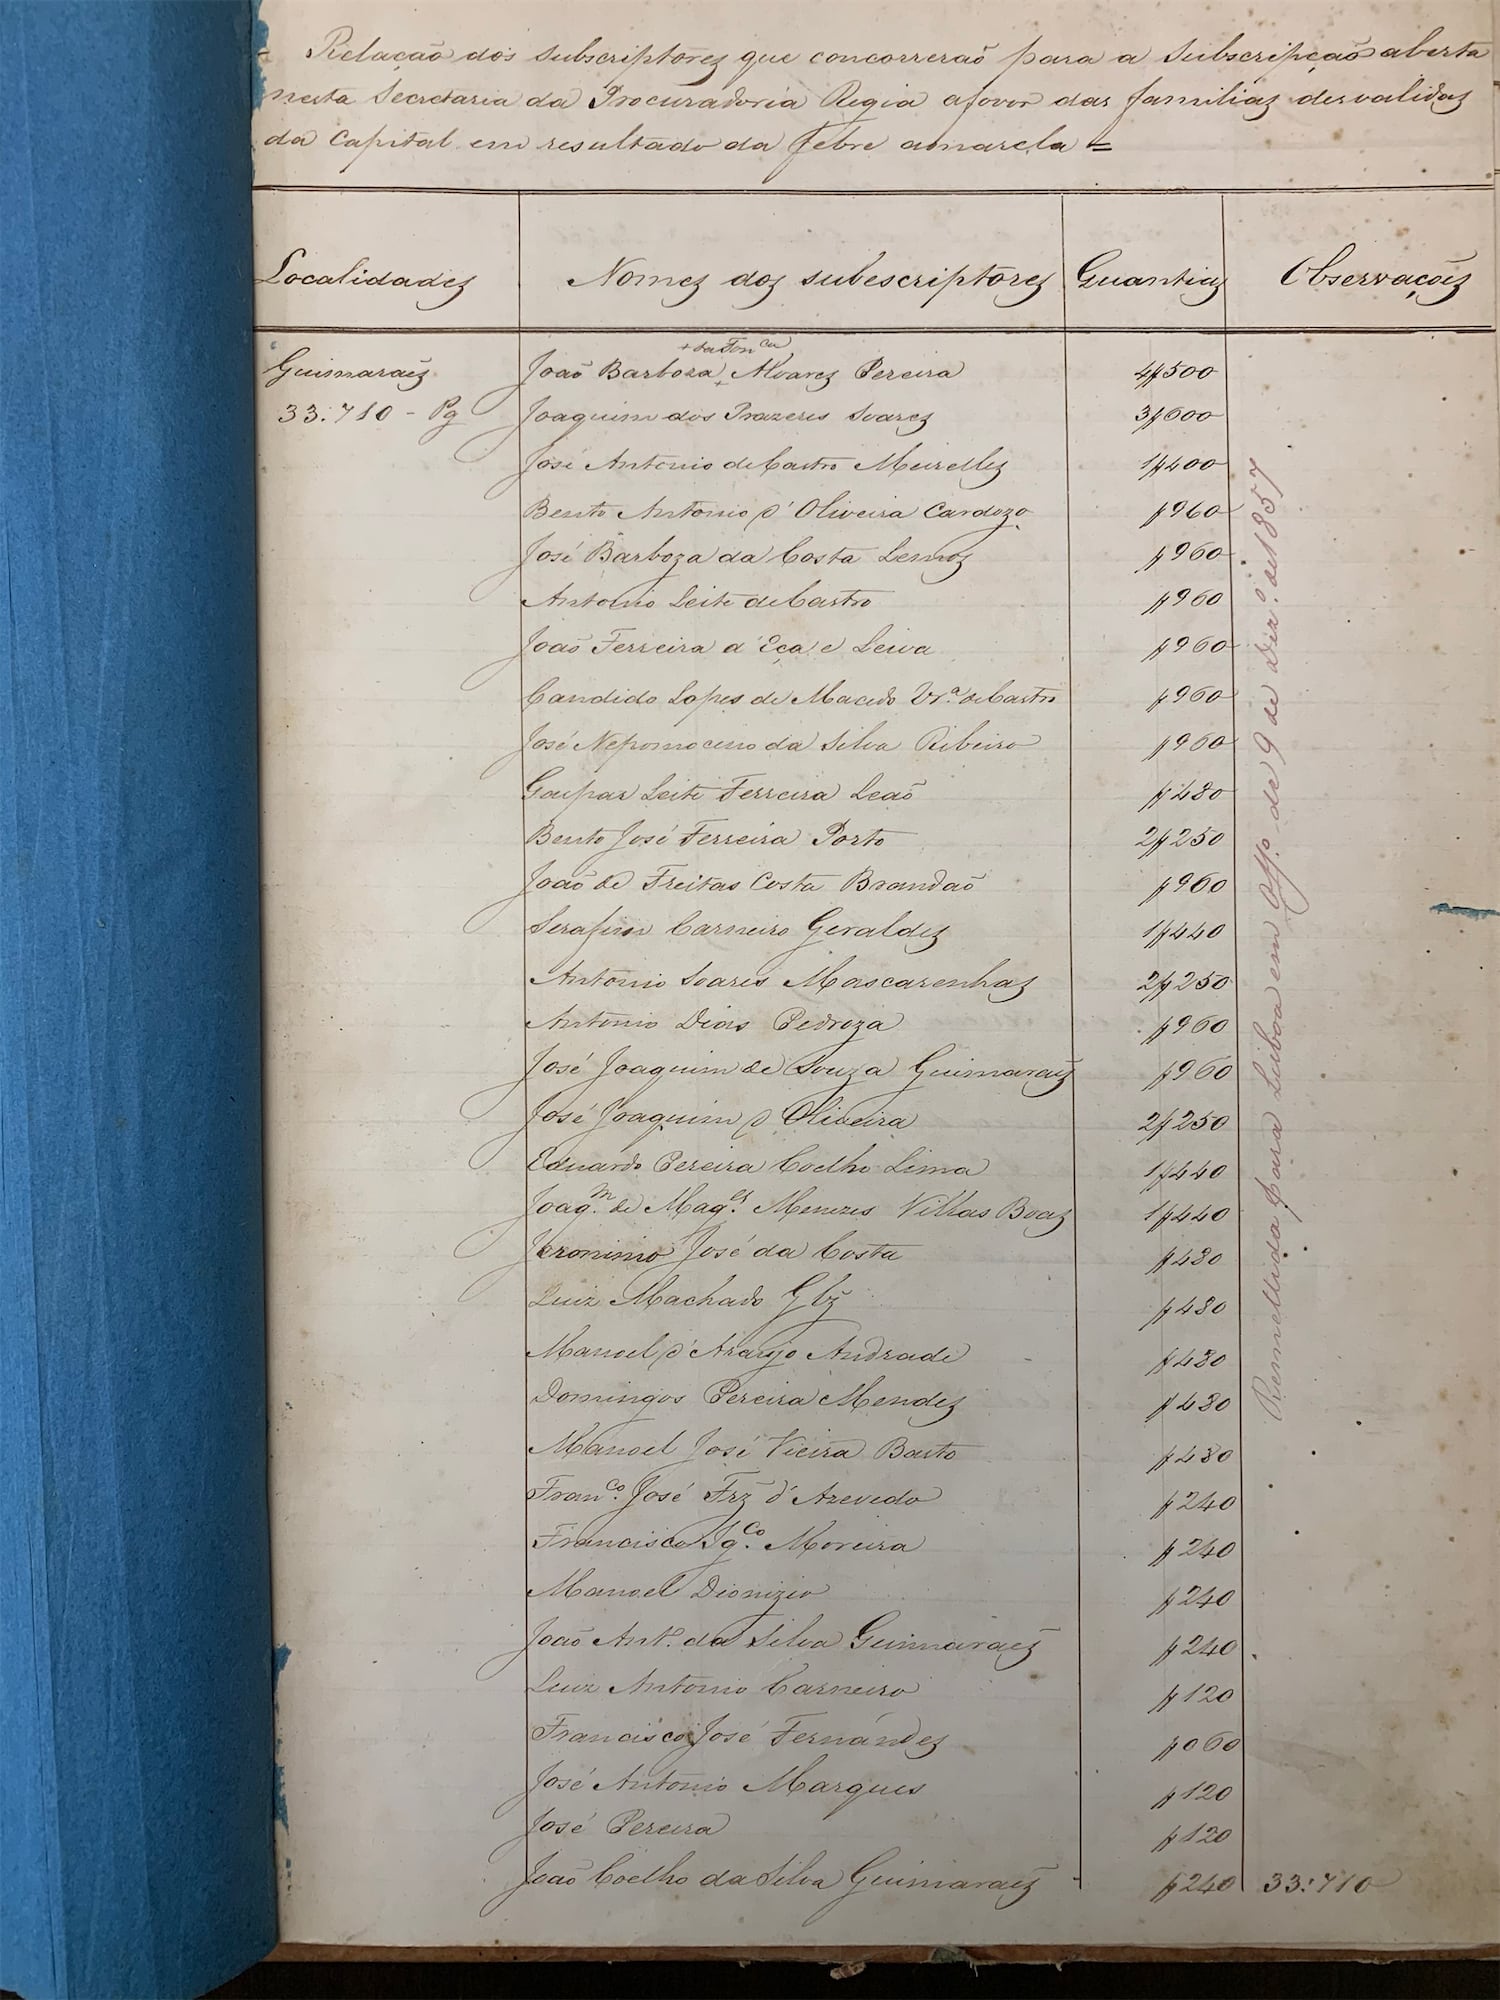 Relação dos subscriptores que concorrerão para a Subscripção aberta
nesta Secretaria da Procuradoria Regia afovor das familias desvalidas
da Capital em resultado da febre amarela =
Localidades Nomes dos subescriptores Quantias Observações
Guimaraẽs João Barboza + Alvares Pereira 4$500
33:710 - Pg Joaquim dos Prazeres Soares 3$600
José Antonio de Castro Meirelles 1$400
Bento Antonio d'Oliveira Cardozo $960
José Barboza da Costa Lemos $960
Antonio Leite de Castro $960
João Ferreira d'Eça e Leiva $960
Candido Lopes de Macedo Vrª. de Castro $960
José Nepomoceno da Silva Ribeiro $960
Gaspar Leite Ferreira Leão $480
Bento José Ferreira Porto 2$250
João de Freitas Costa Brandão $960
Serafim Carneiro Geraldes 1$440
Antonio Soares Mascarenhas 2$250
Antonio Dias Pedroza $960
José Joaquim de Souza Guimaraẽs $960
José Joaquim d'Oliveira 2$250
Eduardo Pereira Coelho Lima 1$440
Joaqᵐ. de Magᵉˢ. Menezes Villas Boas 1$440
Jeronimo José da Costa $480
Luiz Machado Glz̃ $480
Manoel d'Araujo Andrade $480
Domingos Pereira Mendes $480
Manoel José Vieira Basto $480
Franᶜᵒ. José Frz̃ d'Azevedo $240
Francisco Igᶜᵒ. Moreira $240
Manoel Dionizio $240
João Antº. da Silva Guimaraẽs $240
Luiz Antonio Carneiro $120
Francisco José Fernandes $060
José Antonio Marques $120
José Pereira $120
João Coelho da Silva Guimaraẽs $240 33:710
Remettida para Lisboa em Offº. de 9 de Dezº. de 1857